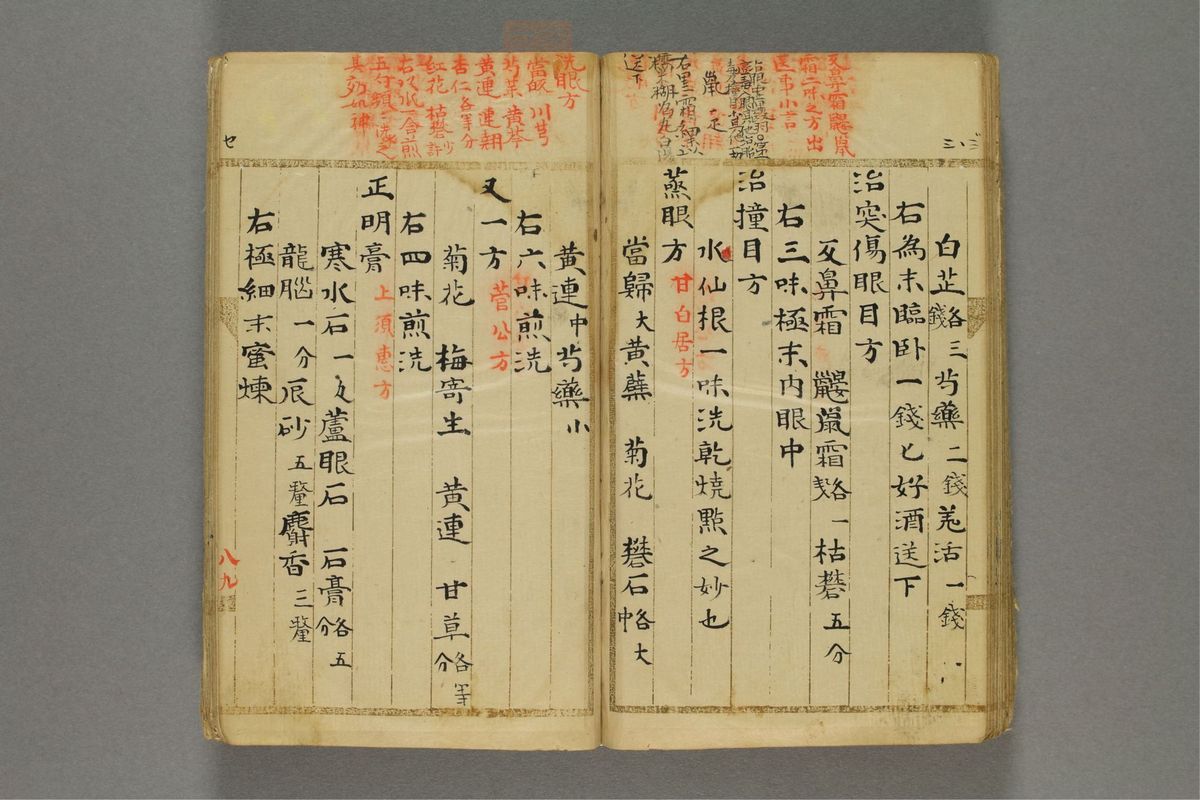 白芷各三錢 芍藥二錢 羗活一錢
右為末臨卧一錢匕好酒送下
治突傷眼目方
反鼻霜 鼴鼠霜各一戔 枯礬五分
右三味極末内眼中
治撞目方
水仙根一味洗乾燒點之妙也
蒸眼方 甘白居方
當歸大 黄蘗 菊花 礬石各中 大
反鼻霜鼴鼠
霜二味之方出
鼠一疋
右黒霜細末以
糊為丸白湯
送下
黄連中 芍藥小
右六味煎洗
又一方 菅公方
菊花 梅寄生 黄連 甘草各等分
右四味煎洗
正明膏 上須惠方
寒水石一匁 蘆眼石 石膏各五分
龍腦一分 辰砂五釐 麝香三釐
右極細末蜜煉
洗眼方
當皈 川芎
芍薬 黄芩
黄連 連翹
杏仁各等分
紅花 枯礬少許
右以水合煎
八九